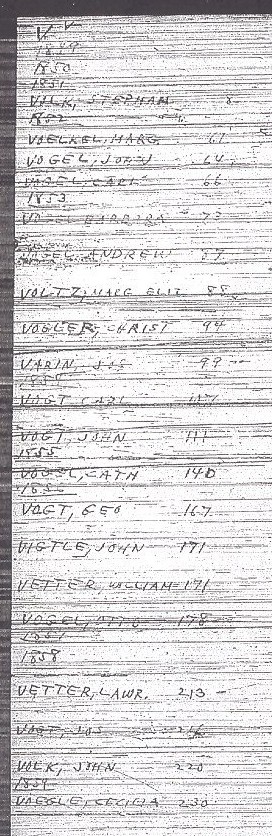 V
1849
1850
1851
VOLK, STEPHAN 8
1852
VOELKEL, MARG 61
VOGEL, JOHN 64
VOGEL, CARL 66
1853
BARBARA 73
VOGEL, ANDREW 87
VOLTZ, MARG ELIZ 88
VOGLER, CHRIST 94
VARIN, JOS 99
VOGT CARL
VOGT, JOHN 111
1855
VOGEL, CATH 140
1856
VOGT, GEO 167
VIGTLE, JOHN 171
VETTER, WILLIAM 171
VOGEL, 178
1858
VETTER, LAWR. 213
VOGT, JOS
VOLK, JOHN 220
1859
VAEGLE, CECILIA 230